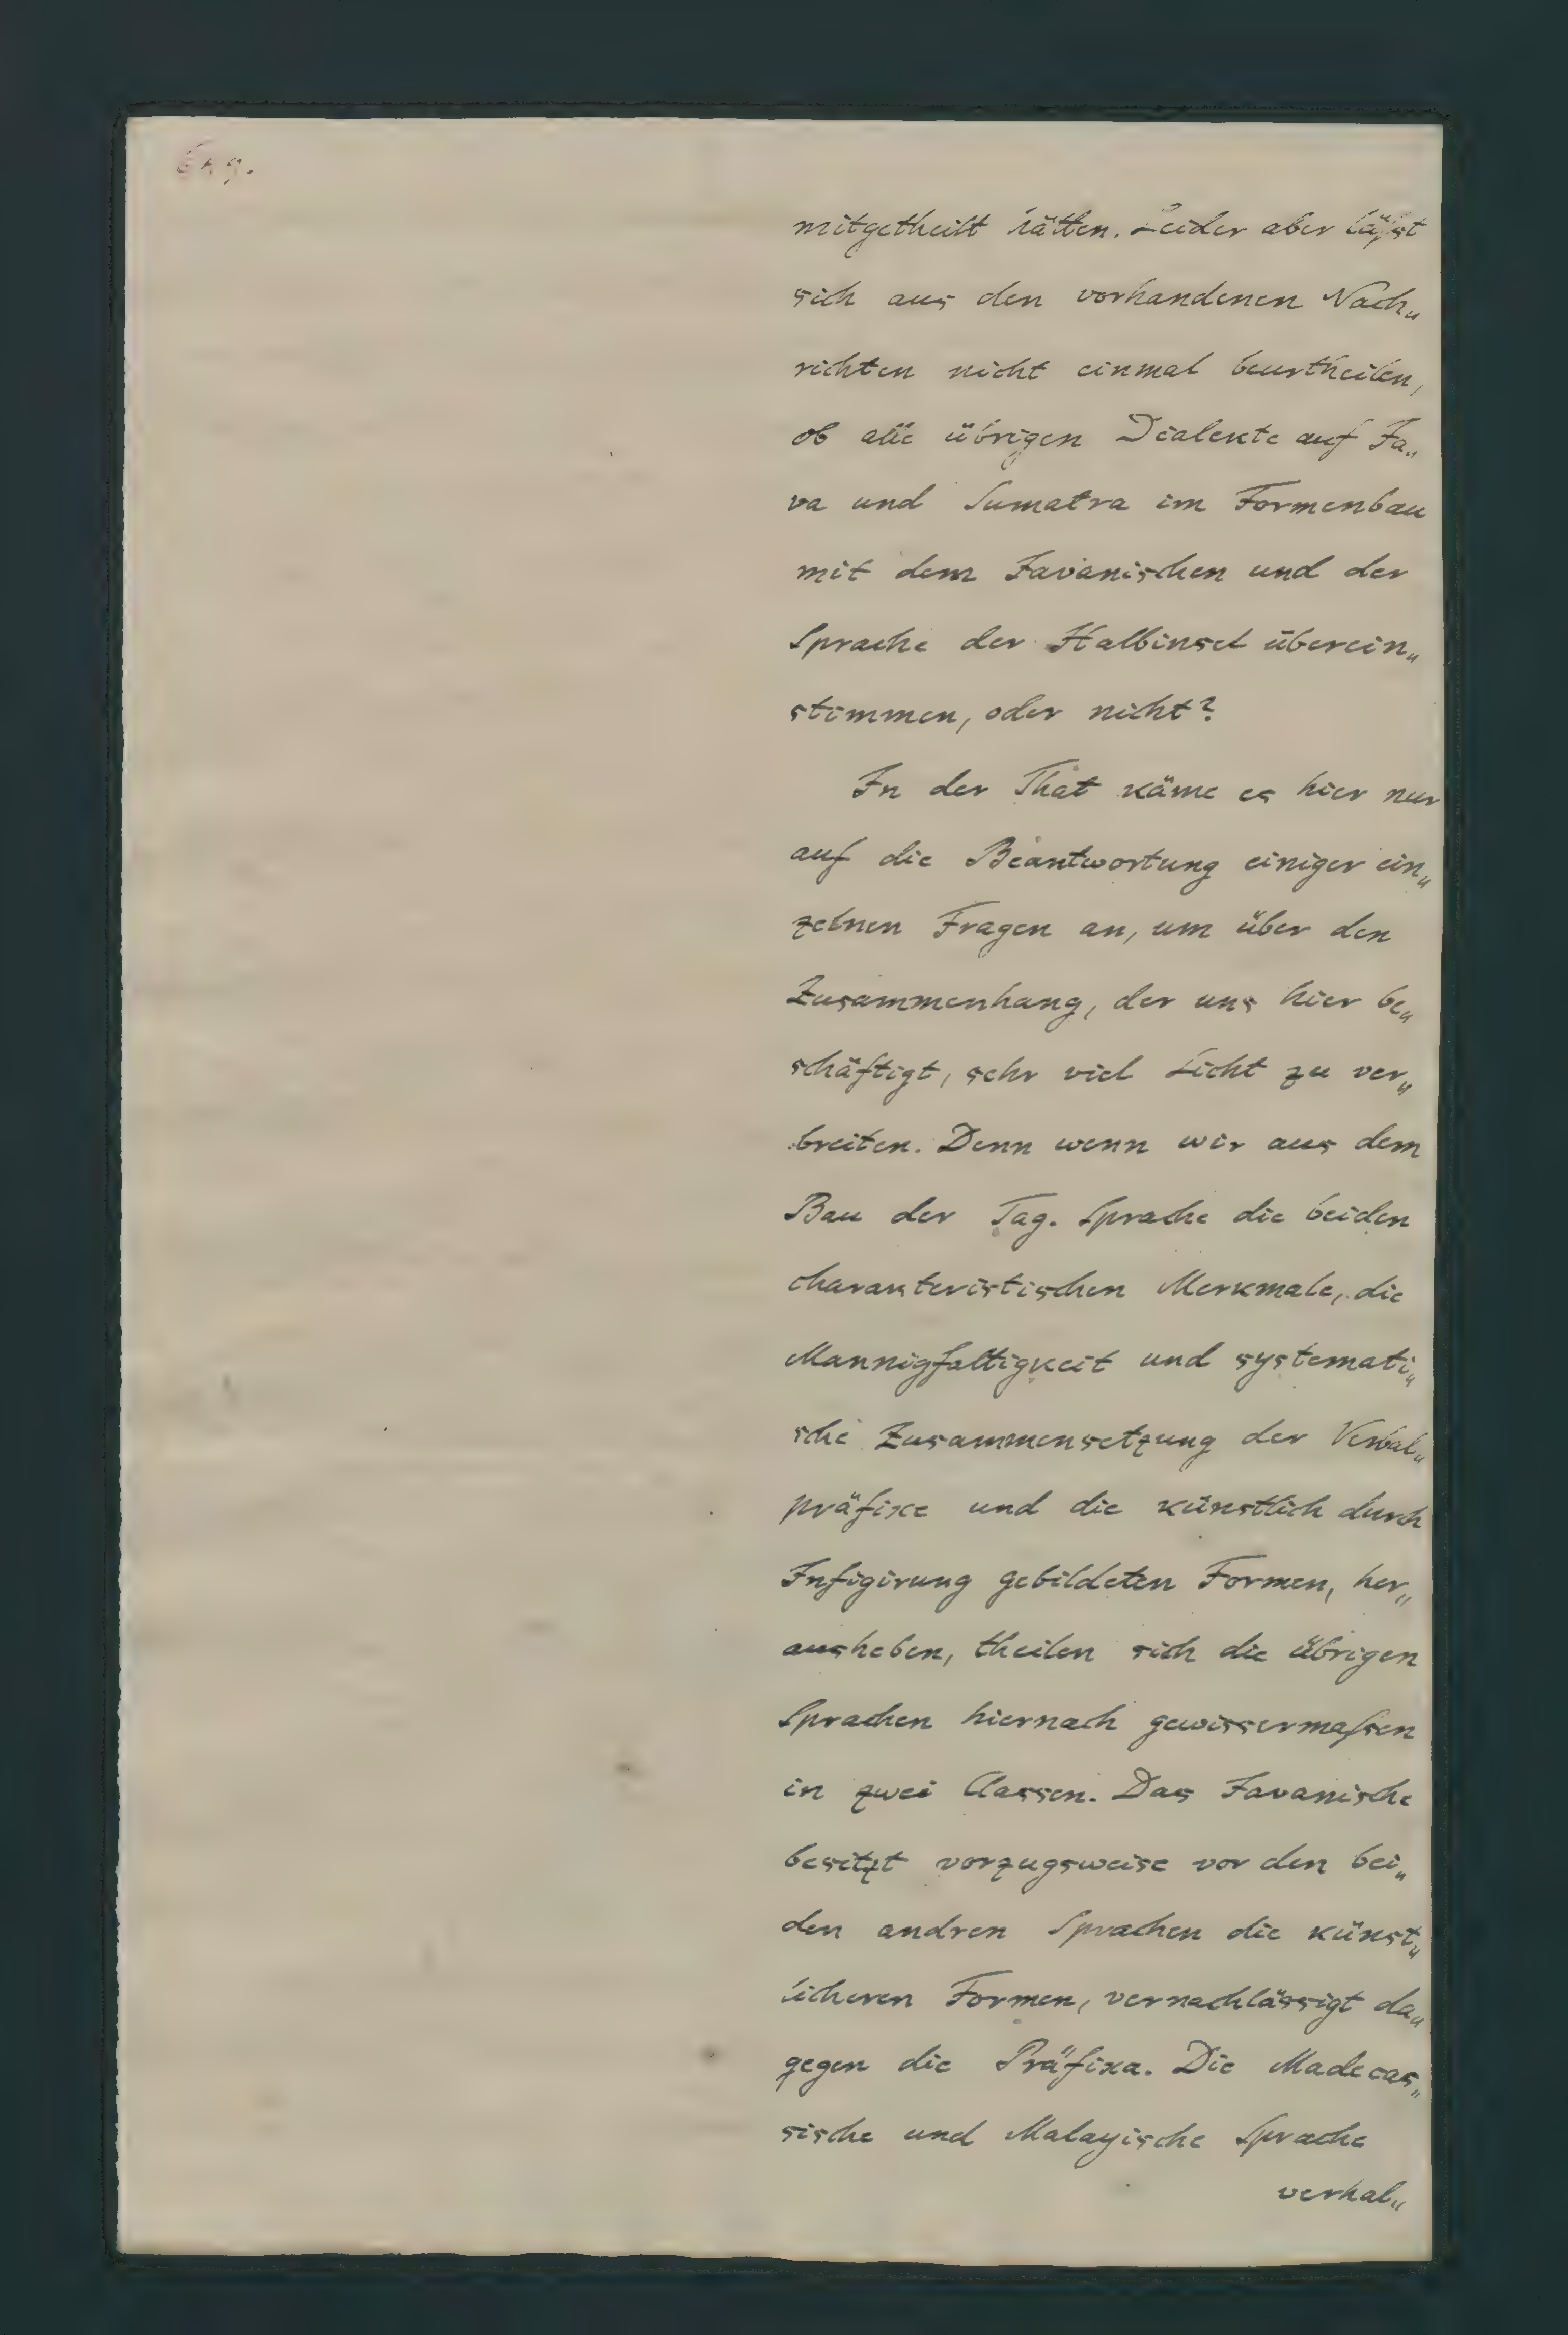 mitgetheilt hätten. Leider aber läſst
sich aus den vorhandenen Nach„
richten nicht einmal beurtheilen,
ob alle übrigen Dialekte auf Ja„
va und Sumatra im Formenbau
mit dem Javanischen und der
Sprache der Halbinsel überein„
stimmen, oder nicht?
In der That käme es hier nur
auf die Beantwortung einiger ein„
zelnen Fragen an, um über den
Zusammenhang, der uns hier be„
schäftigt, sehr viel Licht zu ver„
breiten. Denn wenn wir aus dem
Bau der Tag. Sprache die beiden
charakteristischen Merkmale, die
Mannigfaltigkeit und systemati„
sche Zusammensetzung der Verbal„
präfixe und die künstlich durch
Infigirung gebildeten Formen, her„
ausheben, theilen sich die übrigen
Sprachen hiernach gewissermaſsen
in zwei Classen. Das Javanische
besitzt vorzugsweise vor den bei„
den andren Sprachen die künst„
licheren Formen, vernachlässigt da„
gegen die Präfixa. Die Madecas„
sische und Malayische Sprache
verhal„